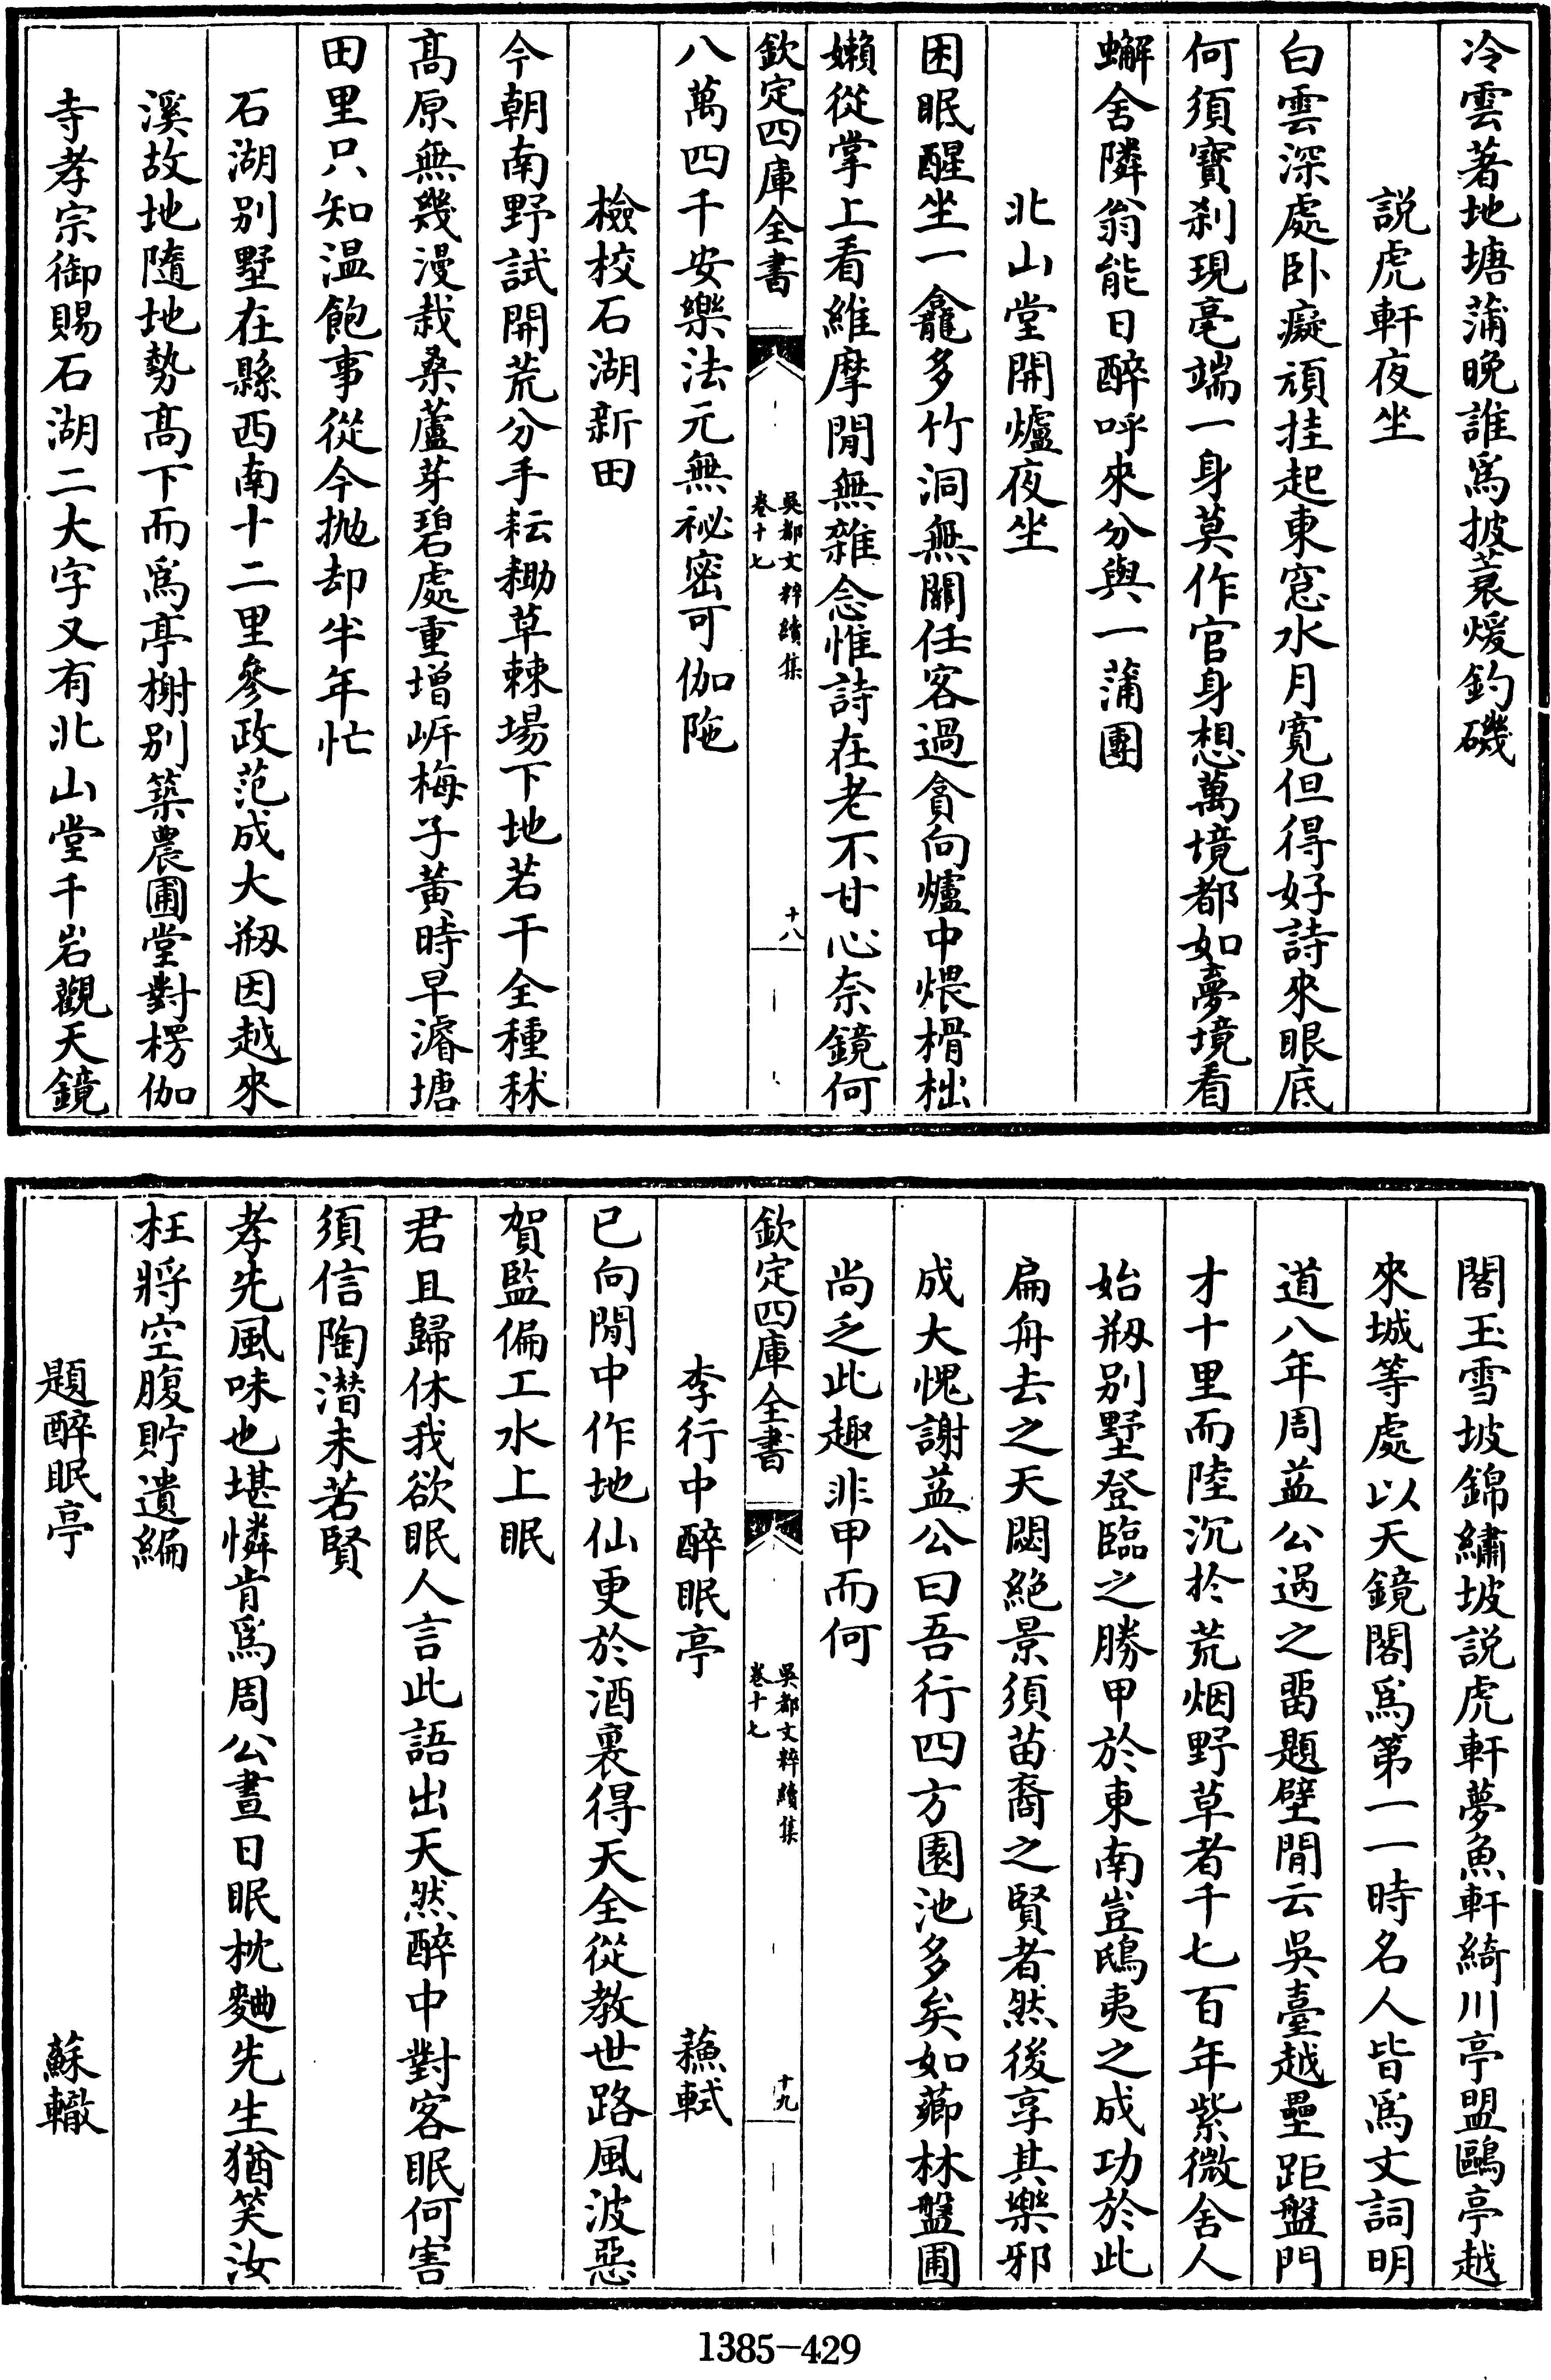 冷雲著地塘蒲晚誰爲披蓑煖釣磯
説虎軒夜坐
白雲深處卧癡頑挂起東窓水月寛但得好詩來眼底
何須寳刹現毫端一身莫作官身想萬境都如夢境看
蠏舍隣翁能日醉呼來分與一蒲團
北山堂開爐夜坐
困眠醒坐一龕多竹洞無關任客過貪向爐中煨榾柮
嬾從掌上看維摩閒無雜念惟詩在老不甘心奈鏡何
欽定四庫全書
吳都文粹續集
卷十七
十八
八萬四千安樂法元無祕密可伽陁
檢校石湖新田
今朝南野試開荒分手耘耡草棘場下地若干全種秫
髙原無幾漫栽桑蘆芽碧處重增㟁梅子黄時早濬塘
田里只知温飽事從今抛却半年忙
石湖别墅在縣西南十二里參政范成大剏因越來
溪故地隨地勢髙下而爲亭榭别築農圃堂對楞伽
寺孝宗御賜石湖二大字又有北山堂千岩觀天鏡
閣玉雪坡錦繡坡説虎軒夢魚軒綺川亭盟鷗亭越
來城等處以天鏡閣爲第一一時名人皆爲文詞明
道八年周益公過之畱題壁閒云吳臺越壘距盤門
才十里而陸沉扵荒烟野草者千七百年紫微舍人
始剏别墅登臨之勝甲於東南豈鴟夷之成功於此
扁舟去之天閟絶景須苗裔之賢者然後享其樂邪
成大愧謝益公曰吾行四方園池多矣如薌林盤圃
尚乏此趣非甲而何
欽定四庫全書
吳都文粹續集
卷十七
十九
李行中醉眠亭
蘓軾
已向閒中作地仙更於酒裏得天全從教世路風波惡
賀監偏工水上眠
君且歸休我欲眠人言此語出天然醉中對客眠何害
須信陶潜未若賢
孝先風味也堪憐肯爲周公晝日眠枕麯先生猶笑汝
枉將空腹貯遺編
題醉眠亭
蘇轍
1385-429